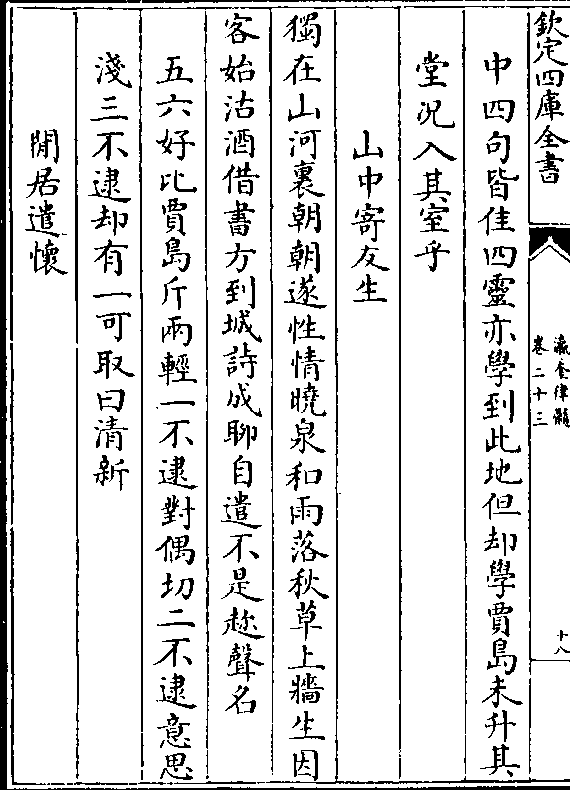 欽定四庫全書
瀛奎律髓
卷二十三
十八
中四句皆佳四靈亦學到此地但却學賈島未升其
堂况入其室乎
山中寄友生
獨在山河裏朝朝遂性情曉泉和雨落秋草上牆生因
客始沽酒借書方到城詩成聊自遣不是趂聲名
五六好比賈島斤兩輕一不逮對偶切二不逮意思
淺三不逮却有一可取曰清新
閒居遣懷